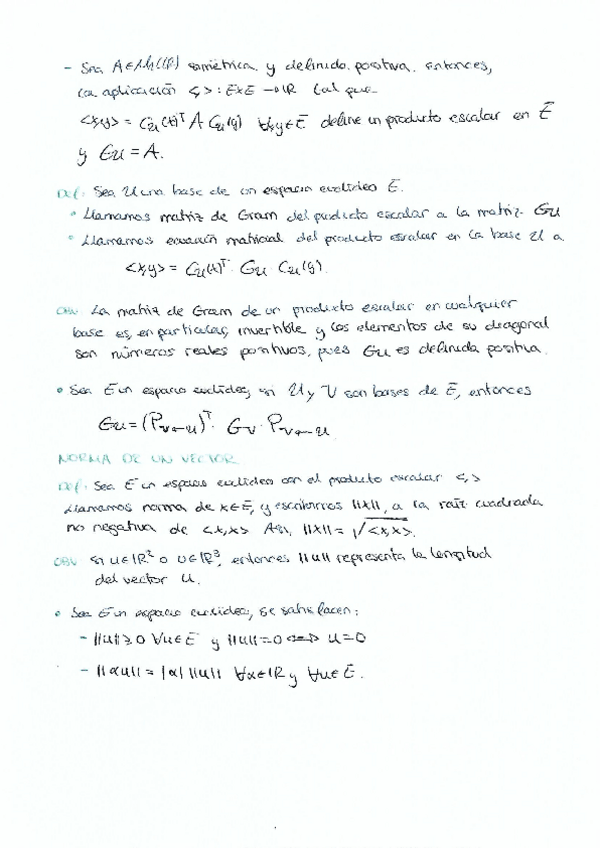 - Sea A∈Mn(ℝ) simétrica y definida positiva. Entonces,
la aplicación <,> : E×E → ℝ tal que
<x,y> = C𝓊(x)ᵀ A C𝓊(y) ∀x,y∈E define un producto escalar en E
y G𝓊 = A.
Def: Sea 𝓊 una base de un espacio euclídeo E.
• Llamamos matriz de Gram del producto escalar a la matriz G𝓊
• Llamamos ecuación matricial del producto escalar en la base 𝓊 a
<x,y> = C𝓊(x)ᵀ · G𝓊 · C𝓊(y).
OBS: La matriz de Gram de un producto escalar en cualquier
base es, en particular, invertible y los elementos de su diagonal
son números reales positivos, pues G𝓊 es definida positiva.
• Sea E un espacio euclídeo, si 𝓊 y V son bases de E, entonces
G𝓊 = (P_V←𝓊)ᵀ · G_V · P_V←𝓊
NORMA DE UN VECTOR
Def: Sea E un espacio euclídeo con el producto escalar <,>
Llamamos norma de x∈E, y escribimos ||x||, a la raíz cuadrada
no negativa de <x,x> Así, ||x|| = √<x,x>.
OBS: si u∈ℝ² o u∈ℝ³, entonces ||u|| representa la longitud
del vector u.
• Sea E un espacio euclídeo, se satisfacen:
- ||u|| ≥ 0 ∀u∈E y ||u|| = 0 ⟺ u = 0
- ||αu|| = |α| ||u|| ∀α∈ℝ y ∀u∈E.